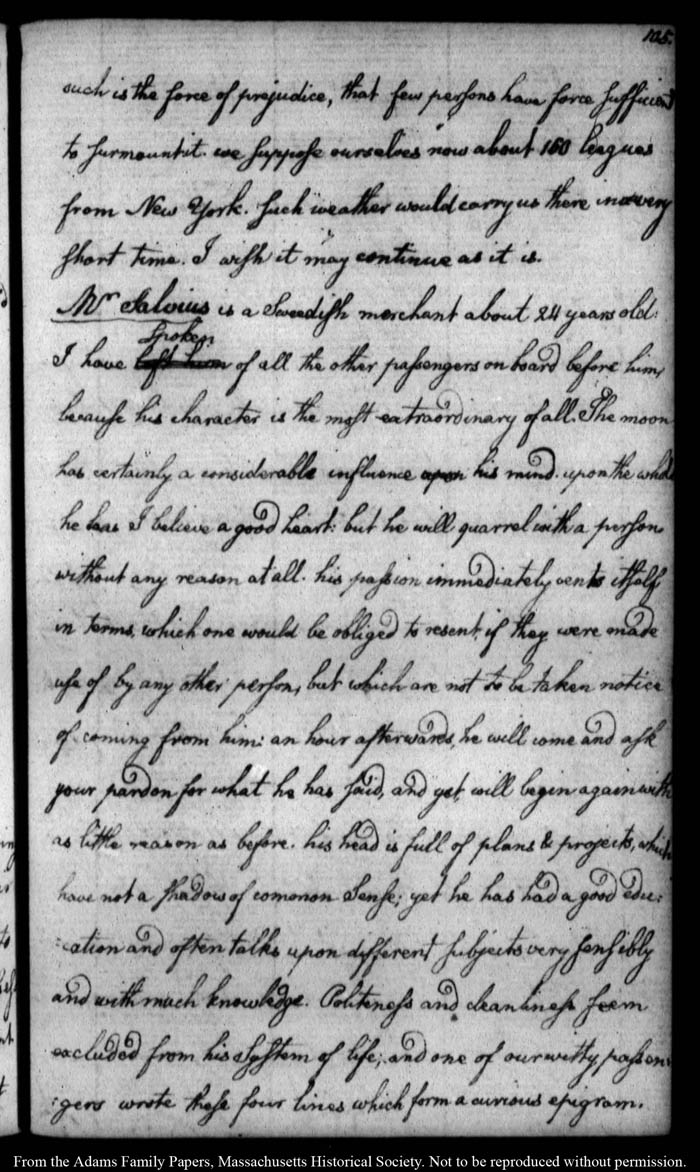 105.
such is the force of prejudice, that few persons have force sufficient
to surmount it. we suppose ourselves now about 160 leagues
from New York. Such weather would carry us there in a very
short time. I wish it may continue as it is.
Mr Salvius is a Sweedish merchant about 24 years old:
spoken
I have left him of all the other passengers on board before him,
because his character is the most extraordinary of all. The moon
has certainly a considerable influence upon his mind. upon the whole
he has I believe a good heart: but he will quarrel with a person
without any reason at all. his passion immediately vents itself
in terms, which one would be obliged to resent, if they were made
use of by any other person, but which are not to be taken notice
of coming from him: an hour afterwards, he will come and ask
your pardon for what he has said, and yet, will begin again with
as little reason as before. his head is full of plans & projects, which
have not a shadow of common Sense; yet he has had a good edu:
:cation and often talks upon different subjects very sensibly
and with much knowledge. Politeness and cleanliness seem
excluded from his system of life, and one of our witty, passen:
:gers wrote these four lines which form a curious epigram.
From the Adams Family Papers, Massachusetts Historical Society. Not to be reproduced without permission